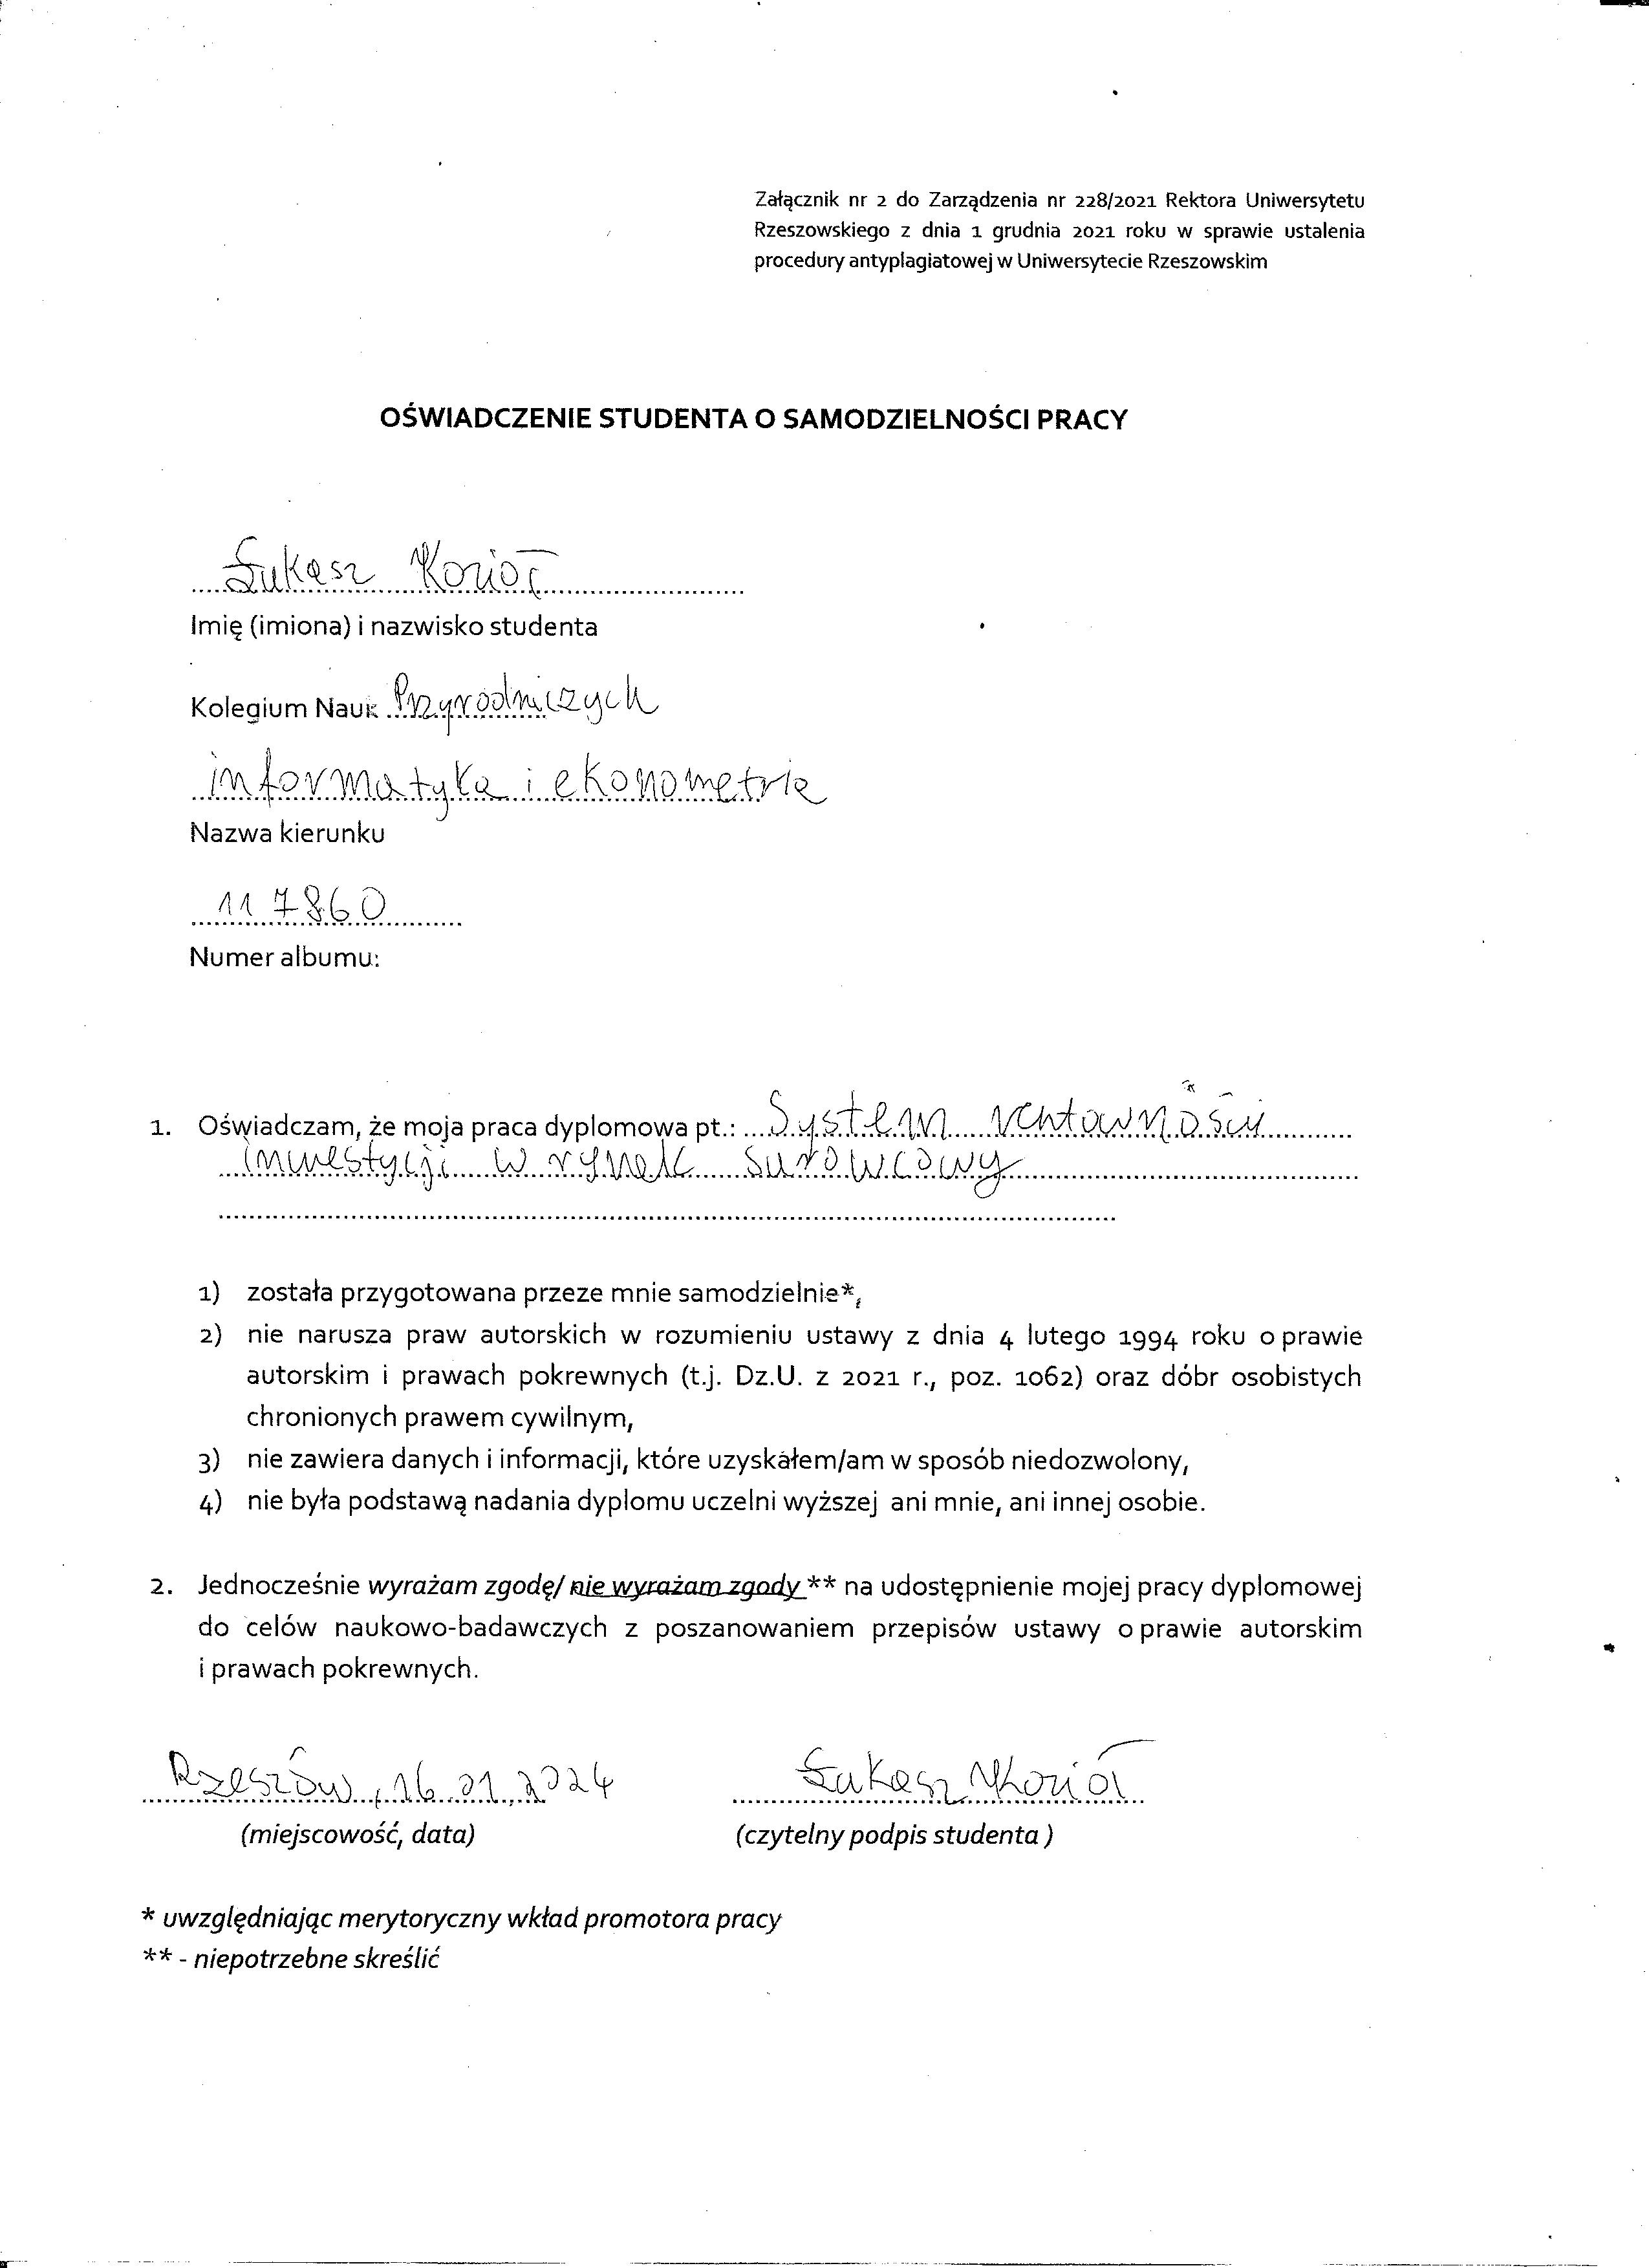 Załącznik nr 2 do Zarządzenia nr 228/2021 Rektora Uniwersytetu
Rzeszowskiego z dnia 1 grudnia 2021 roku w sprawie ustalenia
procedury antyplagiatowej w Uniwersytecie Rzeszowskim
OŚWIADCZENIE STUDENTA O SAMODZIELNOŚCI PRACY
Łukasz Kozioł
Imię (imiona) i nazwisko studenta
Kolegium Nauk Przyrodniczych
informatyka i ekonometria
Nazwa kierunku
117860
Numer albumu:
1. Oświadczam, że moja praca dyplomowa pt.: System rentowności
inwestycji w rynek surowcowy
1) została przygotowana przeze mnie samodzielnie*,
2) nie narusza praw autorskich w rozumieniu ustawy z dnia 4 lutego 1994 roku o prawie
autorskim i prawach pokrewnych (t.j. Dz.U. z 2021 r., poz. 1062) oraz dóbr osobistych
chronionych prawem cywilnym,
3) nie zawiera danych i informacji, które uzyskałem/am w sposób niedozwolony,
4) nie była podstawą nadania dyplomu uczelni wyższej ani mnie, ani innej osobie.
2. Jednocześnie wyrażam zgodę/ nie wyrażam zgody ** na udostępnienie mojej pracy dyplomowej
do celów naukowo-badawczych z poszanowaniem przepisów ustawy o prawie autorskim
i prawach pokrewnych.
Rzeszów, 16.01.2024 Łukasz Kozioł
(miejscowość, data) (czytelny podpis studenta )
* uwzględniając merytoryczny wkład promotora pracy
** - niepotrzebne skreślić